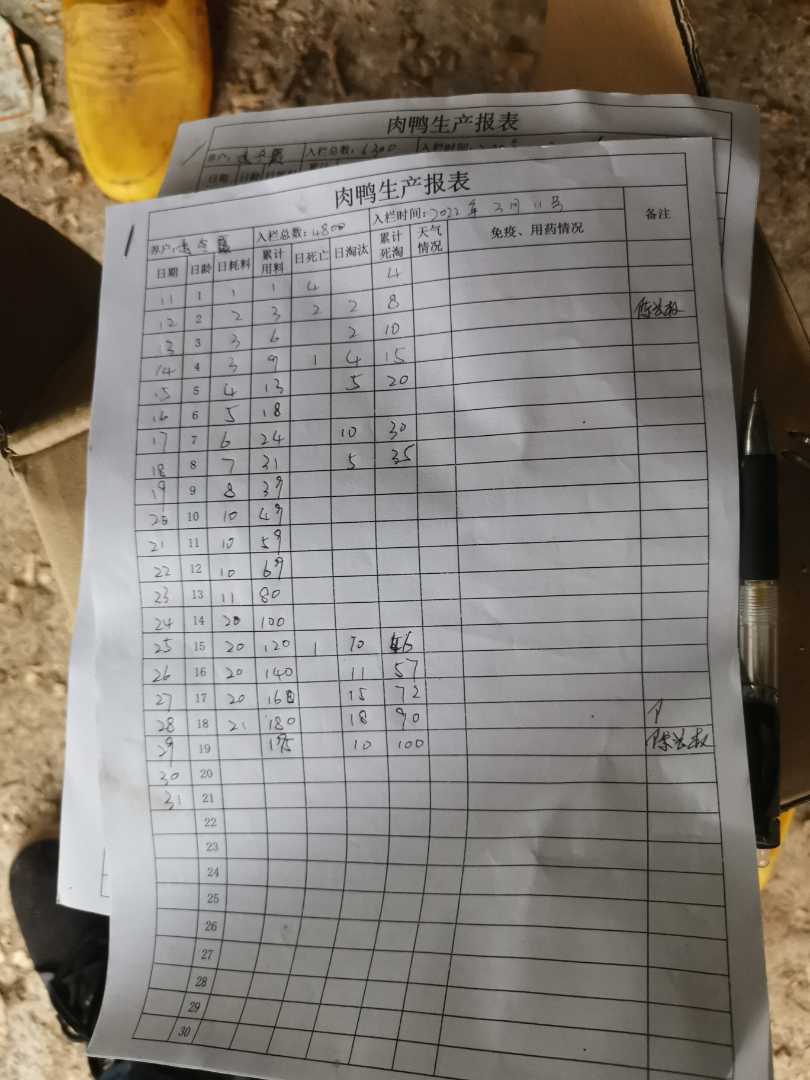 肉鸭生产报表
入栏总数：6300 入栏时间：
日期 日龄
肉鸭生产报表
养户： 入栏总数：4800 入栏时间：2022年3月11号 备注
日期 日龄 日耗料 累计用料 日死亡 日淘汰 累计死淘 天气情况 免疫、用药情况
11 1 1 1 4 4
12 2 2 3 2 2 8
13 3 3 6 2 10
14 4 3 9 1 4 15
15 5 4 13 5 20
16 6 5 18
17 7 6 24 10 30
18 8 7 31 5 35
19 9 8 39
20 10 10 49
21 11 10 59
22 12 10 69
23 13 11 80
24 14 20 100
25 15 20 120 1 10 46
26 16 20 140 11 57
27 17 20 160 15 72
28 18 21 180 18 90
29 19 195 10 100
30 20
31 21
22
23
24
25
26
27
28
29
30